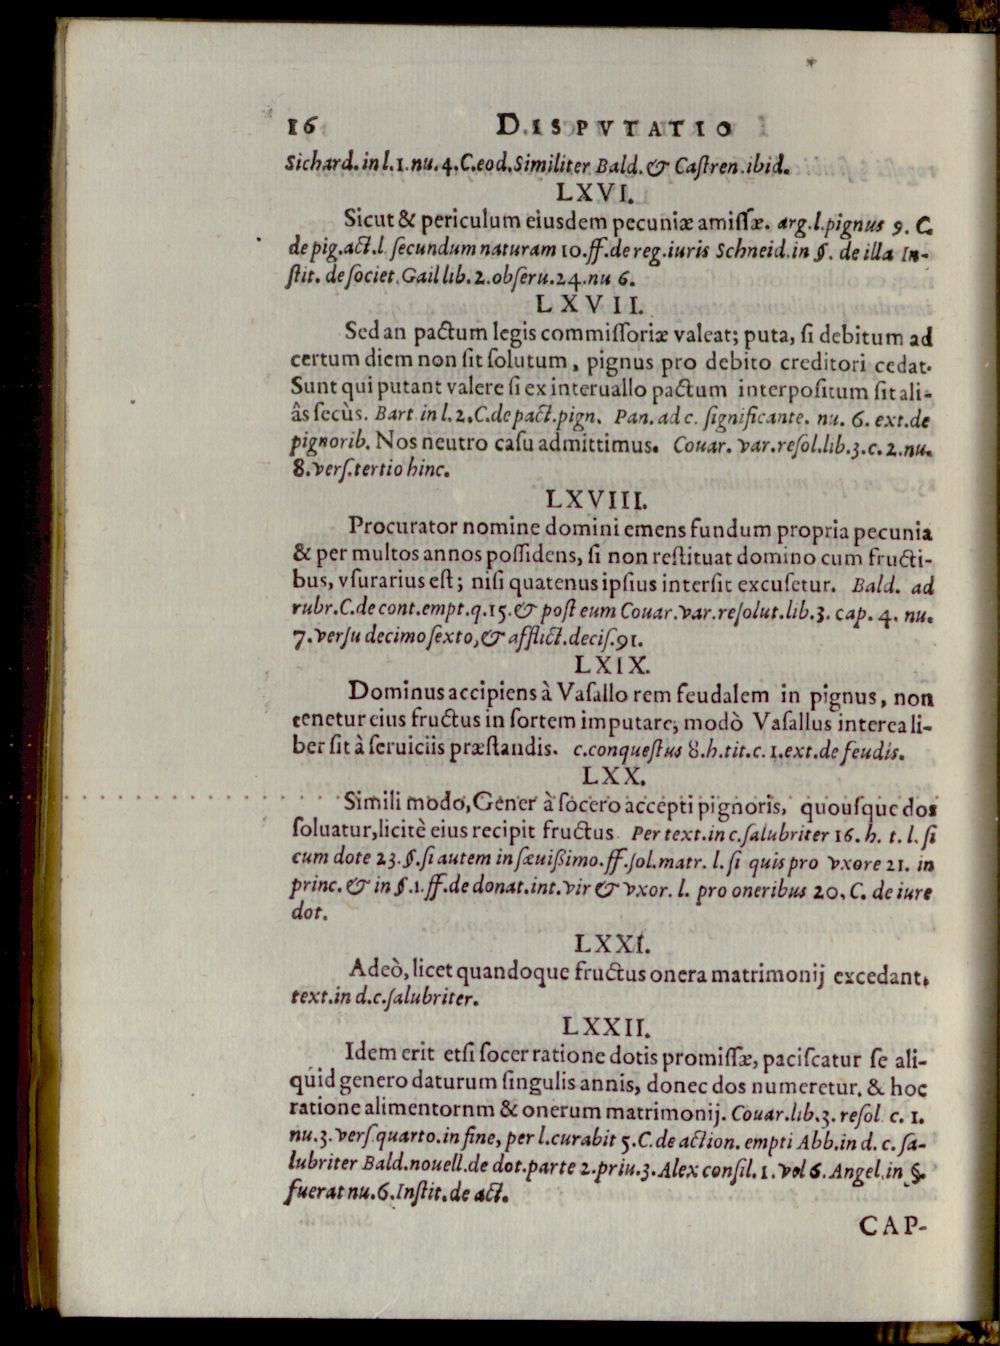 16 DISPVTATIO
Sichard. in l. 1. nu. 4. C. eod. Similiter Bald. & Castren. ibid.
LXVI.
Sicut & periculum eiusdem pecuniæ amissæ. arg. l. pignus 9. C.
de pig. act. l. secundum naturam 10. ff. de reg. iuris Schneid. in §. de illa In-
stit. de societ. Gail lib. 2. obseru. 24. nu 6.
LXVII.
Sed an pactum legis commissoriæ valeat; puta, si debitum ad
certum diem non sit solutum, pignus pro debito creditori cedat.
Sunt qui putant valere si ex interuallo pactum interpositum sit ali-
âs secùs. Bart in l. 2. C. de pact. pign. Pan. ad c. significante. nu. 6. ext. de
pignorib. Nos neutro casu admittimus. Couar. var. resol. lib. 3. c. 2. nu.
8. vers. tertio hinc.
LXVIII.
Procurator nomine domini emens fundum propria pecunia
& per multos annos possidens, si non restituat domino cum fructi-
bus, vsurarius est; nisi quatenus ipsius intersit excusetur. Bald. ad
rubr. C. de cont. empt. q. 15. & post eum Couar. var. resolut. lib. 3. cap. 4. nu.
7. versu decimo sexto, & afflict. decis. 91.
LXIX.
Dominus accipiens à Vasallo rem feudalem in pignus, non
tenetur eius fructus in sortem imputare; modò Vasallus interea li-
ber sit à seruiciis præstandis. c. conquestus 8. h. tit. c. 1. ext. de feudis.
LXX.
Simili modo, Gener à socero accepti pignoris, quousque dos
soluatur, licitè eius recipit fructus Per text. in c. salubriter 16. h. t. l. si
cum dote 23. §. si autem in sæuißimo. ff. sol. matr. l. si quis pro vxore 21. in
princ. & in §. 1. ff. de donat. int. vir & vxor. l. pro oneribus 20. C. de iure
dot.
LXXI.
Adeò, licet quandoque fructus onera matrimonij excedant.
text. in d. c. salubriter.
LXXII.
Idem erit etsi socer ratione dotis promissæ, paciscatur se ali-
quid genero daturum singulis annis, donec dos numeretur. & hoc
ratione alimentornm & onerum matrimonij. Couar. lib. 3. resol c. 1.
nu. 3. vers quarto. in fine, per l. curabit 5. C. de action. empti Abb. in d. c. sa-
lubriter Bald. nouell. de dot. parte 2. priu. 3. Alex consil. 1. vol 6. Angel. in §.
fuerat nu. 6. Instit. de act.
CAP-